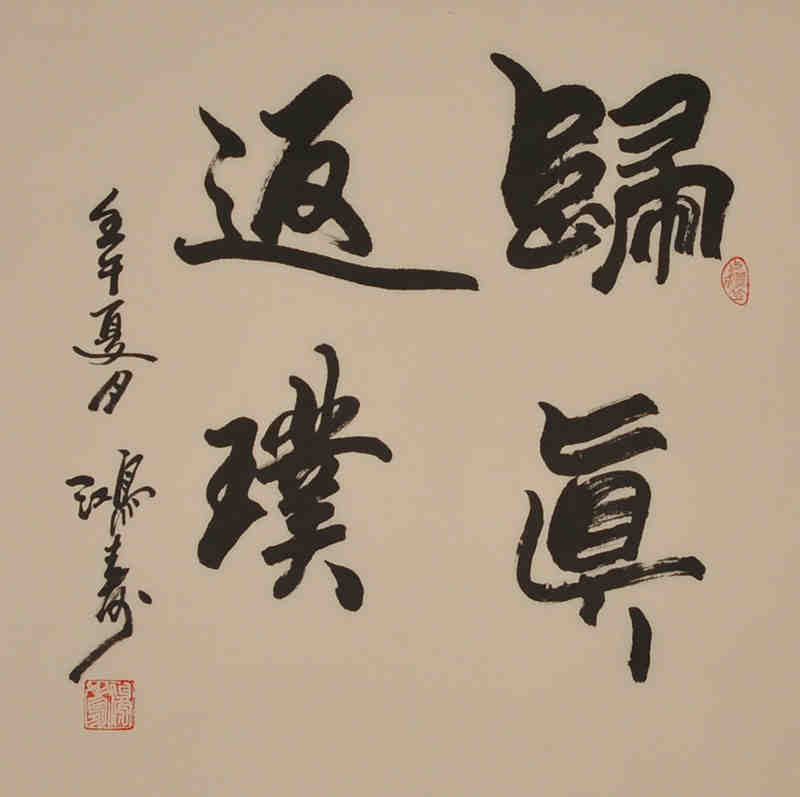 歸真
返璞
壬午夏月 鴻壽